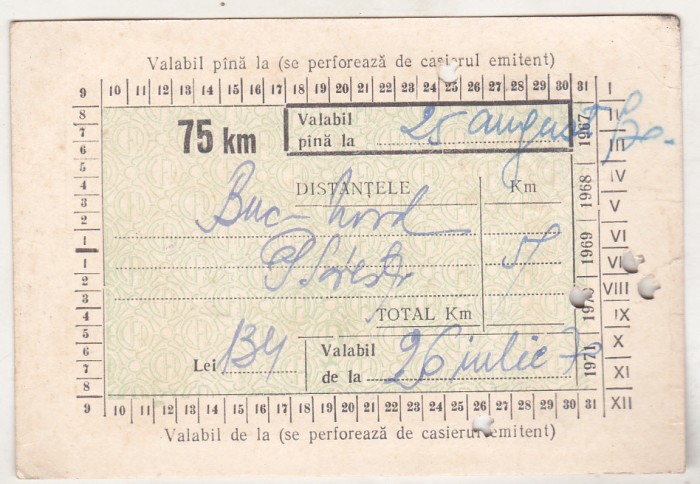 Valabil pînă la (se perforează de casierul emitent)
9 10 11 12 13 14 15 16 17 18 19 20 21 22 23 24 25 26 27 28 29 30 31 I
8 7 6 5 4 3 2 1
75 km
Valabil pînă la 25 august 70
DISTANȚELE Km
Buc - Nord
Ploiești 59
TOTAL Km
Lei 134
Valabil de la 26 iulie 70
1 2 3 4 5 6 7 8
1967 1968 1969 1970 1971
II III IV V VI VII VIII IX X XI XII
9 10 11 12 13 14 15 16 17 18 19 20 21 22 23 24 25 26 27 28 29 30 31
Valabil de la (se perforează de casierul emitent)